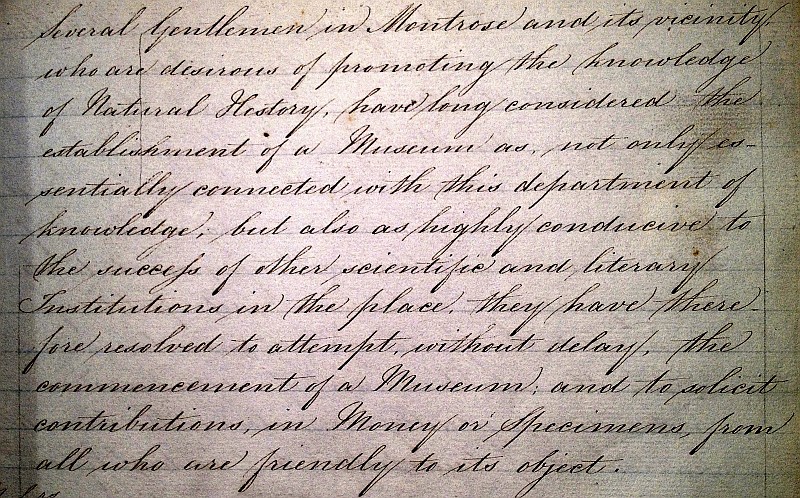 Several Gentlemen in Montrose and its vicinity,
who are desirous of promoting the knowledge
of Natural History, have long considered the
establishment of a Museum as, not only es-
sentially connected with this department of
knowledge, but also as highly conducive to
the success of other scientific and literary
Institutions in the place. They have there-
fore resolved to attempt, without delay, the
commencement of a Museum; and to solicit
contributions, in Money or Specimens, from
all who are friendly to its object.